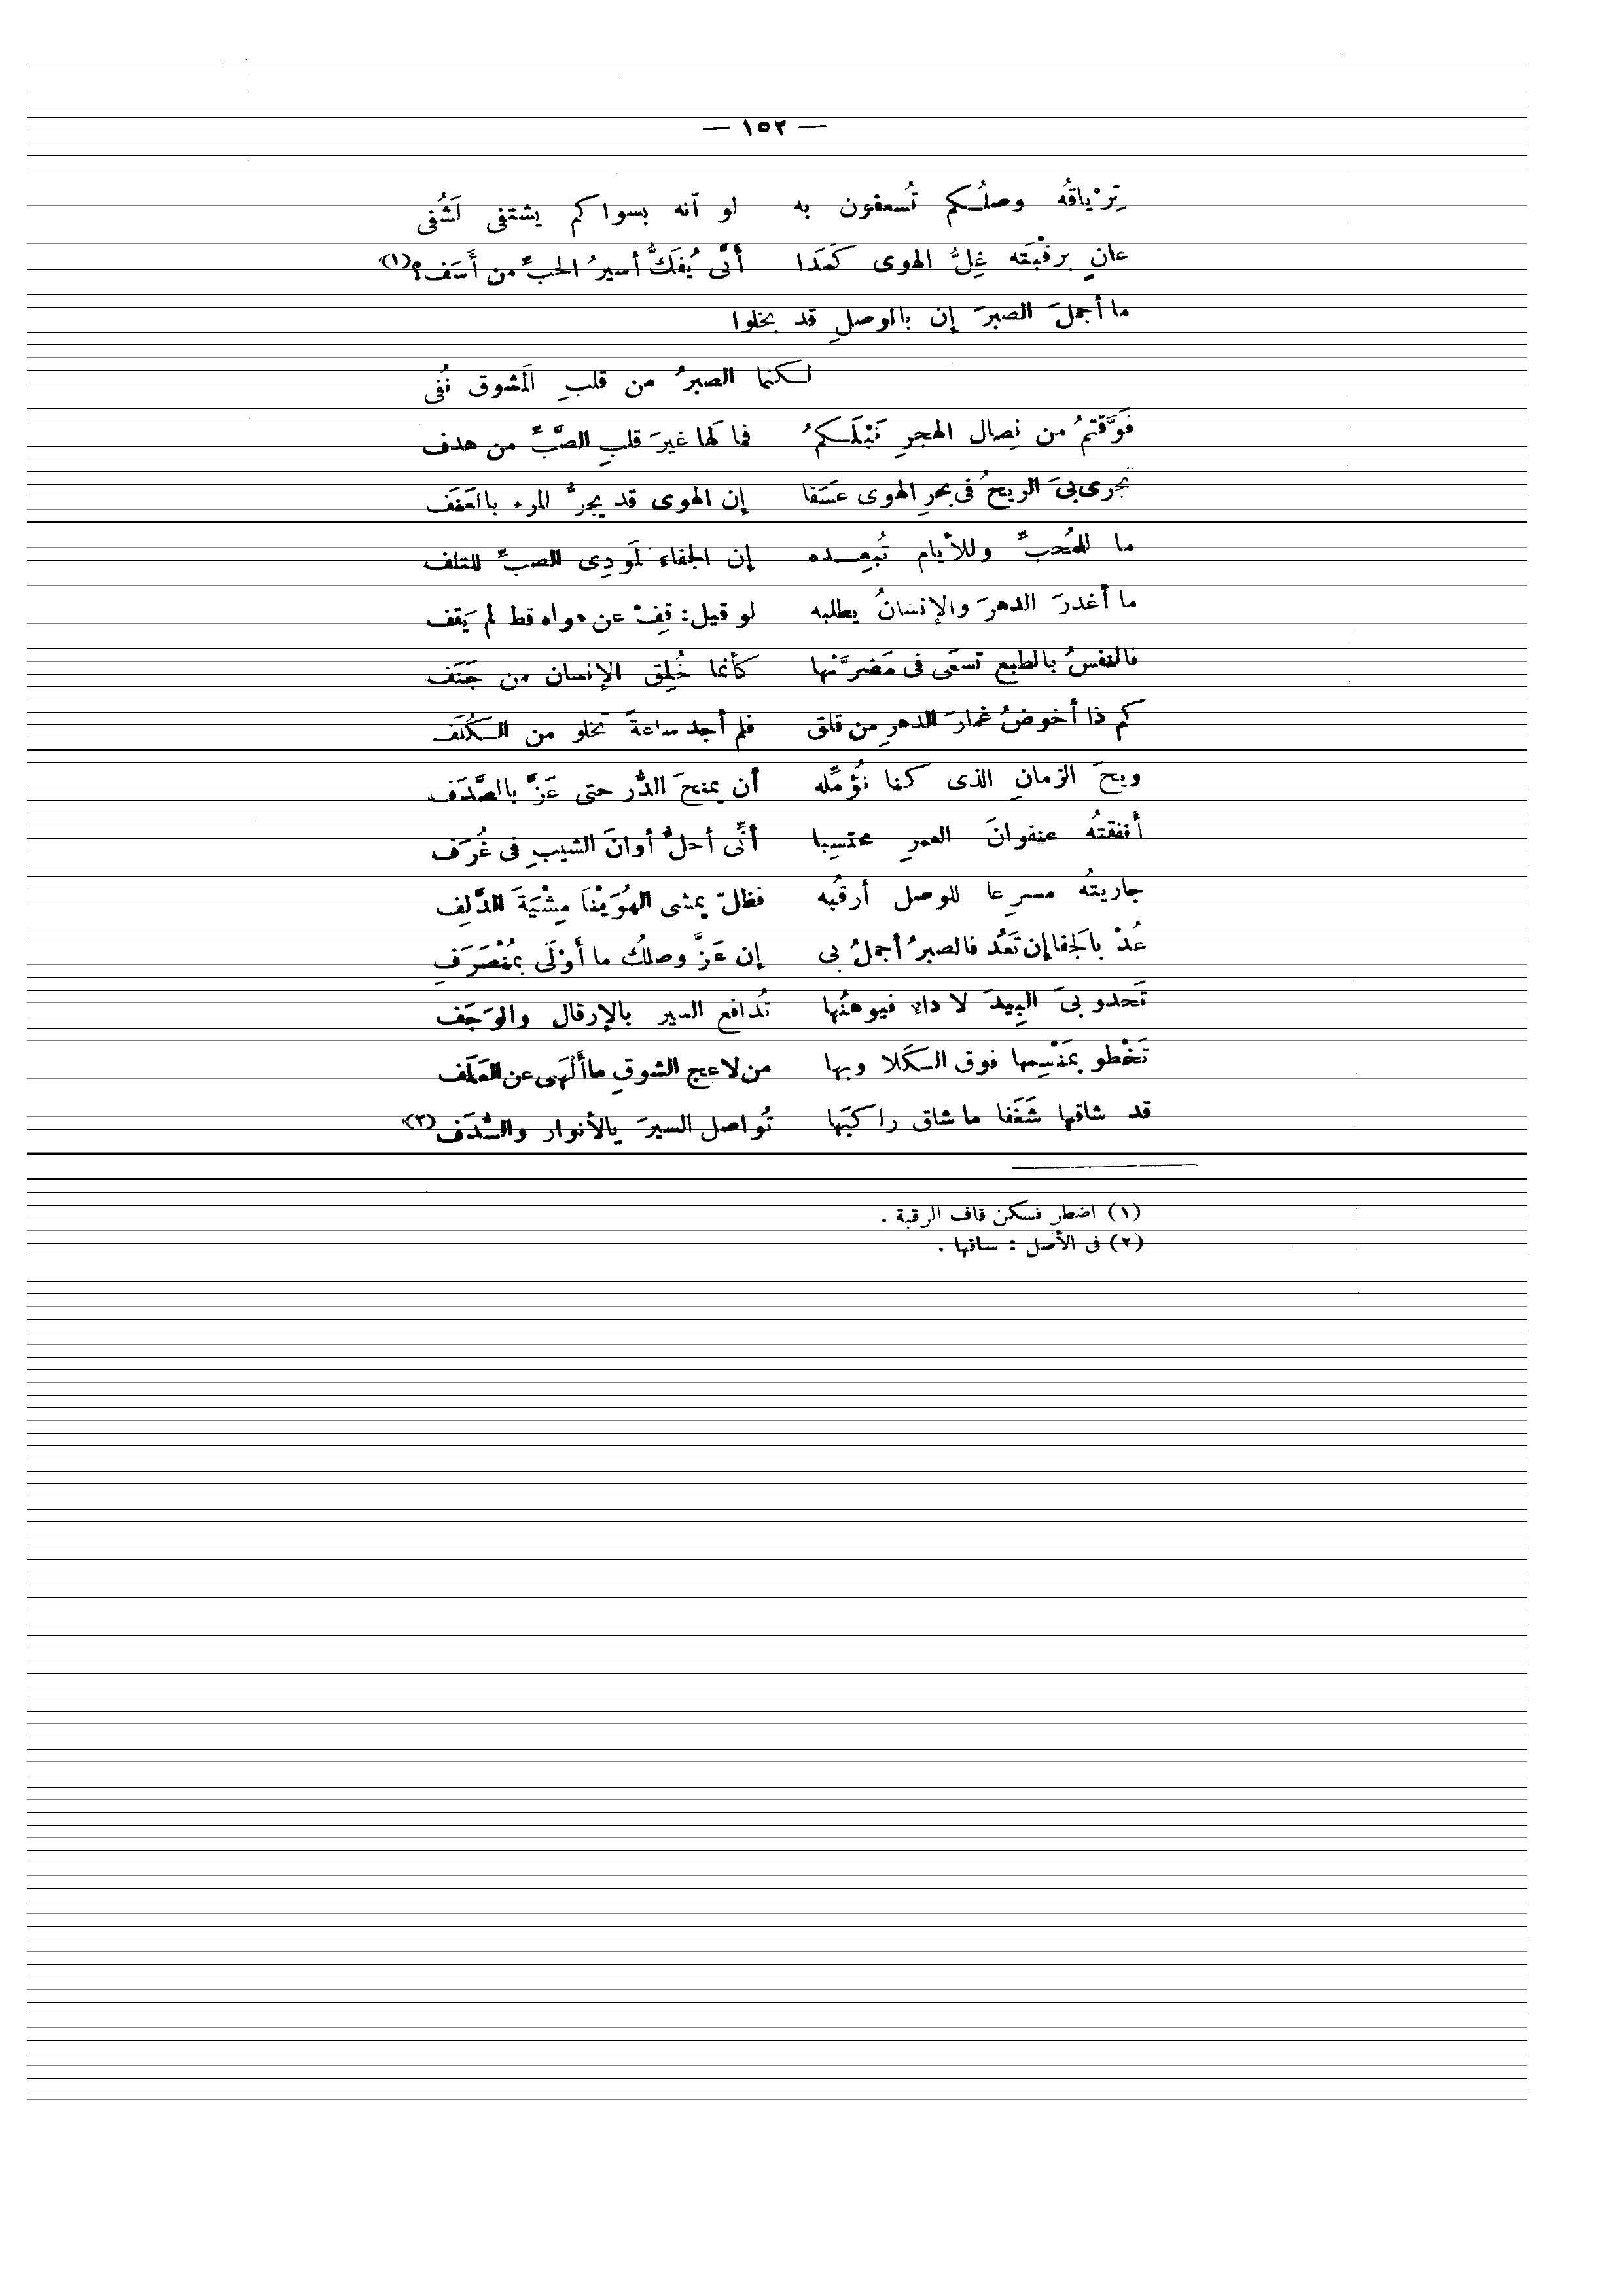 — ١٥٢ —
تِرْياقُه وصلُكم تُسعفون به لو أنه بسواكم يشتفى لَشُفى
عانٍ برقْبَته غِلُّ الهوى كَمَدَا أنَّى يُفَكُّ أسيرُ الحبِّ من أَسَف؟(١)
ما أجملَ الصبرَ إن بالوصلِ قد بخلوا
لكنما الصبرُ من قلبِ المَشوق نُفى
فَوَّقتمُ من نِصال الهجرِ نَبْلَكمُ فما لها غيرَ قلبِ الصَّبِّ من هدف
تجرى بىَ الريحُ فى بحرِ الهوى عَسَفا إن الهوى قد يجرُّ المرء بالعَنَف
ما للمُحبِّ وللأيام تُبعِده إن الجفاء لَمودِى الصبِّ للتلف
ما أغدرَ الدهرَ والإنسانُ يطلبه لو قيل: قِفْ عن هواه قط لم يَقف
فالنفسُ بالطبع تسعَى فى مَضرَّتها كأنما خُلِق الإنسان من جَنَف
كم ذا أخوضُ غمارَ الدهرِ من قلق فلم أجد ساعةً تخلو من الكُلَف
ويحَ الزمانِ الذى كنا نُؤمِّله أن يمنحَ الدُّر حتى عَزَّ بالصَّدَف
أنفقتُه عنفوانَ العمرِ محتسِبا أنِّى أحلُّ أوانَ الشيبِ فى غُرَف
جاريتُه مسرعا للوصل أرقُبه فظلّ يمشى الهُوَيْنَا مِشْيَةَ الدَّلِف
عُدْ بالجَفا إن تَعُد فالصبرُ أجملُ بى إن عَزَّ وصلُك ما أَوْلَى بمُنْصَرَفِ
تَحدو بىَ البِيدَ لا داء فيوهنُها تُدافع السير بالإرقال والوَجَف
تَخْطو بمَنْسِمها فوق الكَلا وبها من لاعج الشوقِ ما أَلْهَى عن العَلَف
قد شاقها شَغَفا ما شاق راكبَها تُواصل السيرَ بالأنوار والسُّدَف(٢)
(١) اضطر فسكن قاف الرقبة .
(٢) فى الأصل : ساقها .